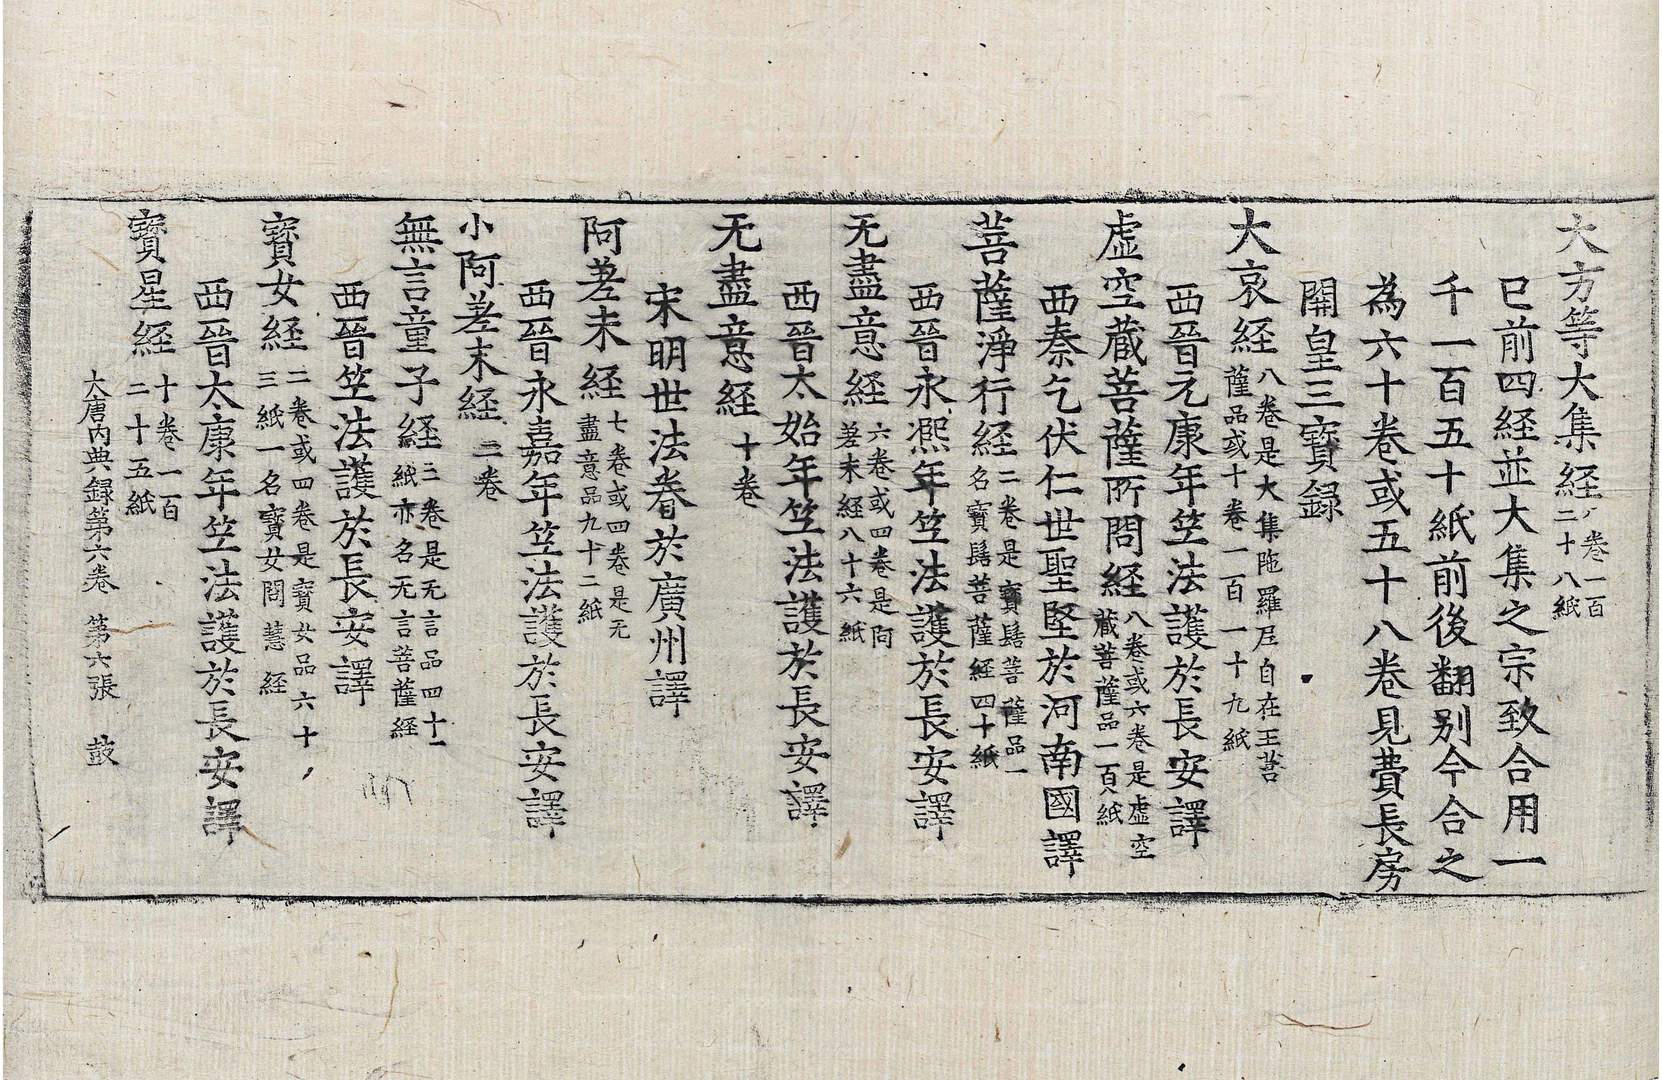 大方等大集経八卷一百二十八紙
已前四経並大集之宗致合用一
千一百五十紙前後翻别今合之
為六十卷或五十八卷見費長房
開皇三寶録
大哀経八卷是大集陁羅尼自在王菩薩品或十卷一百一十九紙
西晉元康年竺法護於長安譯
虚空藏菩薩所問経八卷或六卷是虚空藏菩薩品一百紙
西秦乞伏仁世聖堅於河南國譯
菩薩淨行経二卷是寶髻菩薩品一名寶髻菩薩経四十紙
西晉永熈年竺法護於長安譯
无盡意経六卷或四卷是阿差末経八十六紙
西晉太始年竺法護於長安譯
无盡意経十卷
宋明世法眷於廣州譯
阿差末経七卷或四卷是无盡意品九十二紙
西晉永嘉年竺法護於長安譯
小阿差末経二卷
無言童子経二卷是无言品四十一紙亦名无言菩薩経
西晉竺法護於長安譯
寶女経二卷或四卷是寶女品六十三紙一名寶女問慧経
西晉太康年竺法護於長安譯
寶星経十卷一百二十五紙
大唐内典録第六卷 第六張 鼓